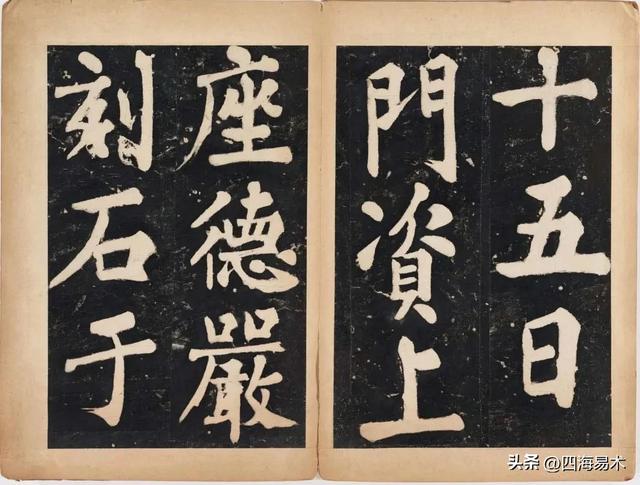 十五日
門資上
座德嚴
刻石于
头条 @四海易木